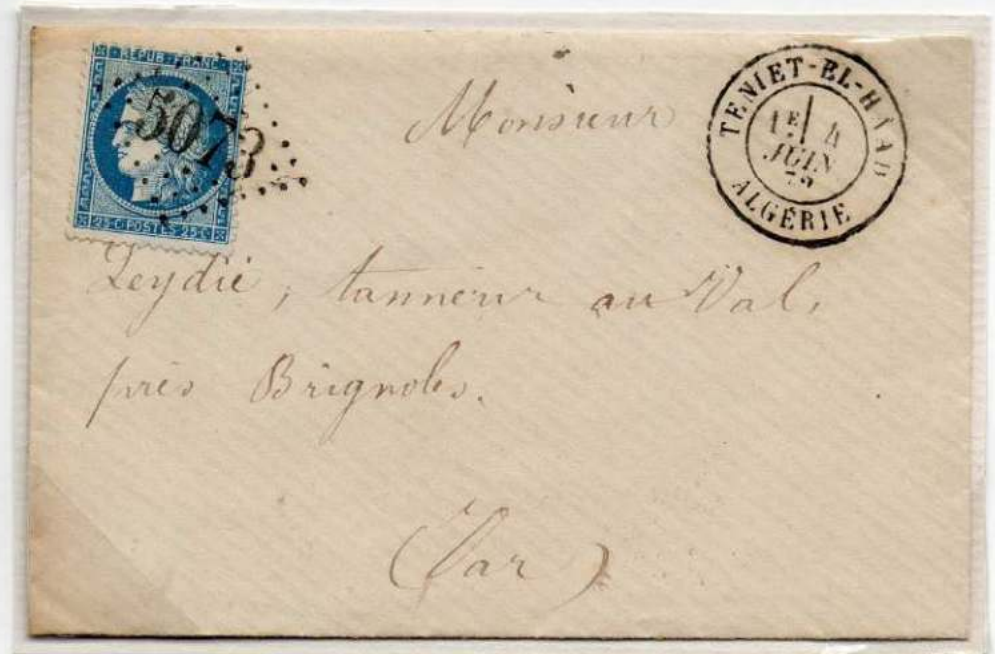 REPUB·FRANC
5073
25·C·POSTES·25·C
TENIET-EL-HÂAD
1E 4
JUIN
75
ALGÉRIE
Monsieur
Leydié, tanneur au Val,
près Brignoles.
(Var)